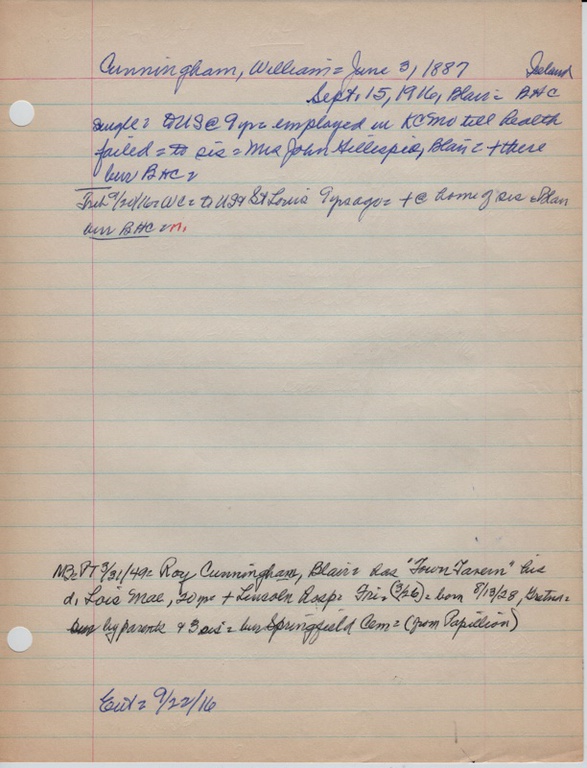 Cunningham, William = June 3, 1887 Ireland
Sept. 15, 1916, Blair = BHC
single = to US @ 9 yr = employed in KC Mo till health
failed = to sis = Mrs John Gillespie, Blair = + there
bur BHC =
Trib 9/20/16 = WC = to US + St Louis 9 yrs ago = + @ home of sis = Blair
bur BHC =
MB = PT 3/31/49 = Roy Cunningham, Blair = has "Town Tavern" his
d, Lois Mae, 20 + Lincoln Hosp = Fri (3/26) = born 8/13/28, Gretna =
by parents & 3 sis = bur Springfield Cem = (from Papillion)
Ent = 9/22/16